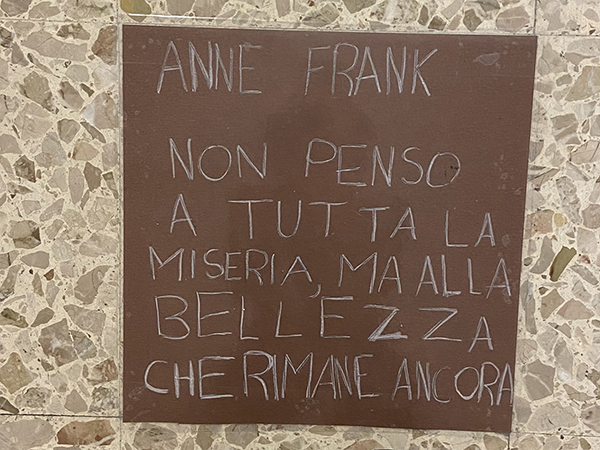 ANNE FRANK
NON PENSO
A TUTTA LA
MISERIA, MA ALLA
BELLEZZA
CHE RIMANE ANCORA